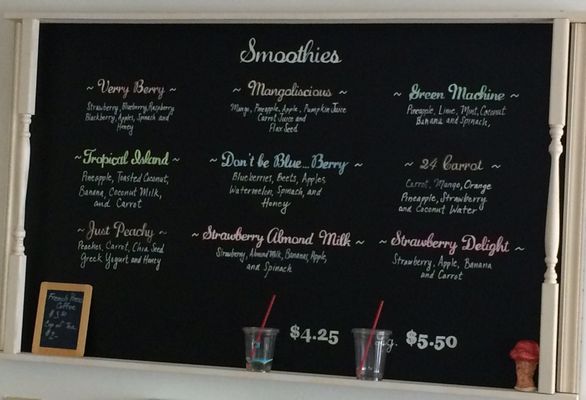 Smoothies
~ Verry Berry ~
Strawberry, Blueberry, Raspberry
Blackberry, Apples, Spinach and
Honey
~ Mangoliscious ~
Mango, Pineapple, Apple, Pumpkin Juice
Carrot Juice and
Flax Seed
~ Green Machine ~
Pineapple, Lime, Mint, Coconut
Banana and Spinach,
~ Tropical Island ~
Pineapple, Toasted Coconut,
Banana, Coconut Milk,
and Carrot
~ Don't be Blue...Berry ~
Blueberries, Beets, Apples
Watermelon, Spinach, and
Honey
~ 24 Carrot ~
Carrot, Mango, Orange
Pineapple, Strawberry
and Coconut Water
~ Just Peachy ~
Peaches, Carrot, Chia Seed
Greek Yogurt and Honey
~ Strawberry Almond Milk ~
Strawberry, Almond Milk, Bananas, Apple,
and Spinach
~ Strawberry Delight ~
Strawberry, Apple, Banana
and Carrot
French Press
Coffee
Cup of Tea
$4.25
g. $5.50